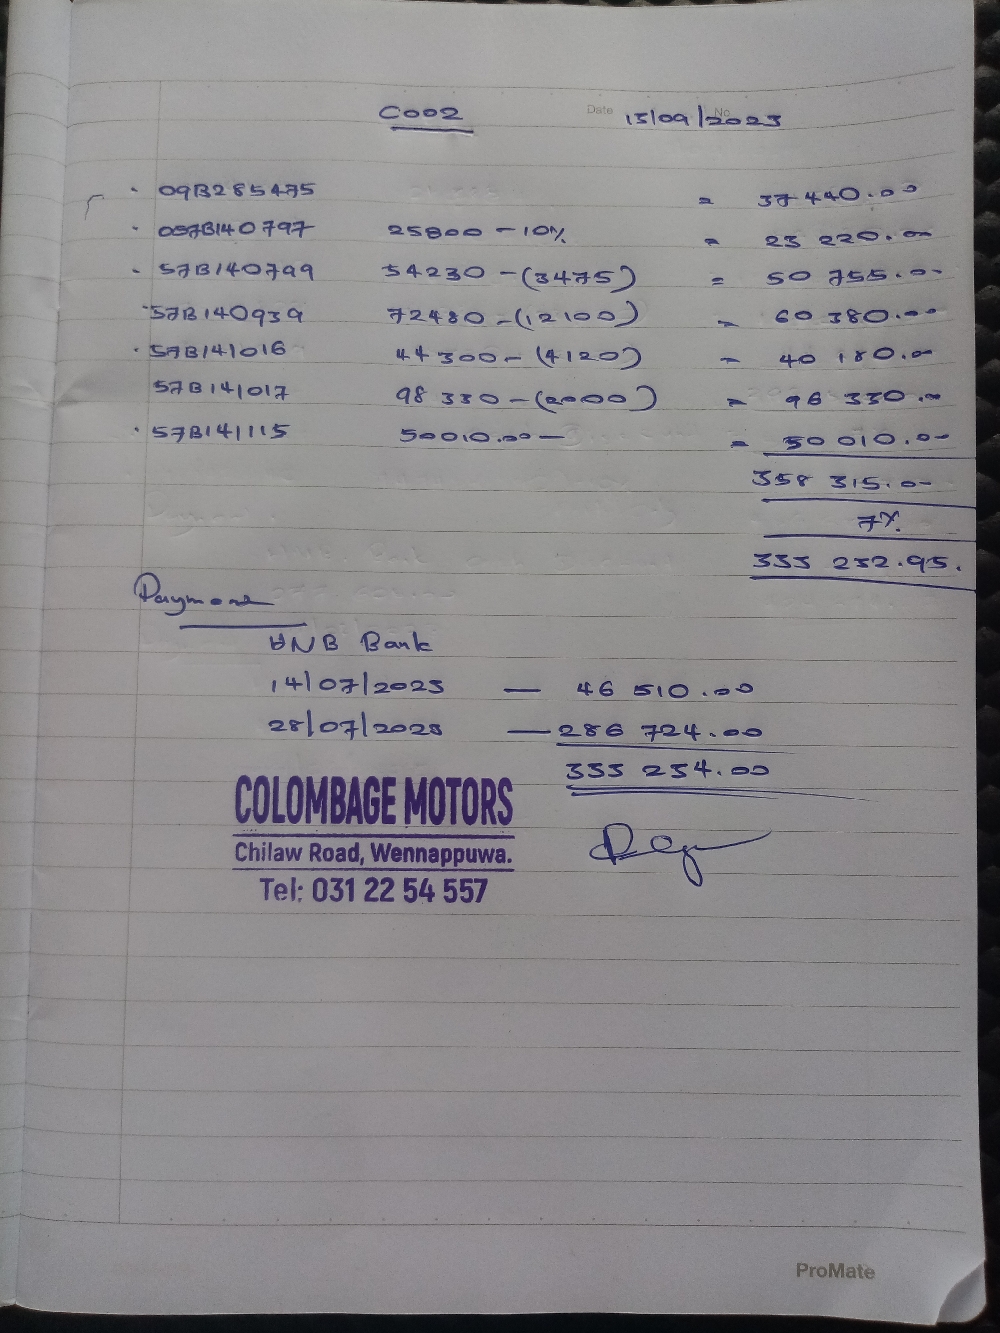 C002
Date No 15/09/2023
· 09B285475 = 37 440.00
· 057B140797 25800 - 10% = 23 220.00
· 57B140799 54230 - (3475) = 50 755.00
· 57B140939 72480 - (12100) = 60 380.00
· 57B141016 44300 - (4120) = 40 180.00
57B141017 98 330 - (2000) = 96 330.00
· 57B141115 50010.00 - = 50 010.00
358 315.00
7%
333 232.95.
Payment
HNB Bank
14/07/2023 — 46 510.00
28/07/2023 — 286 724.00
333 234.00
COLOMBAGE MOTORS
Chilaw Road, Wennappuwa.
Tel: 031 22 54 557
ProMate